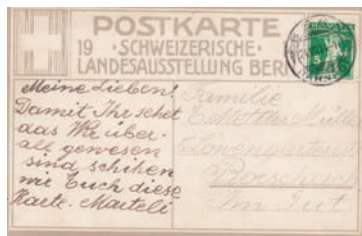 POSTKARTE
19 · SCHWEIZERISCHE ·
LANDESAUSSTELLUNG BERN
Meine Lieben!
Damit Ihr sehet
das Wir über-
all gewesen
sind schiken
wir Euch diese
Karte. Marteli
Familie
Löwengartenst
Rorschach
Im Gut